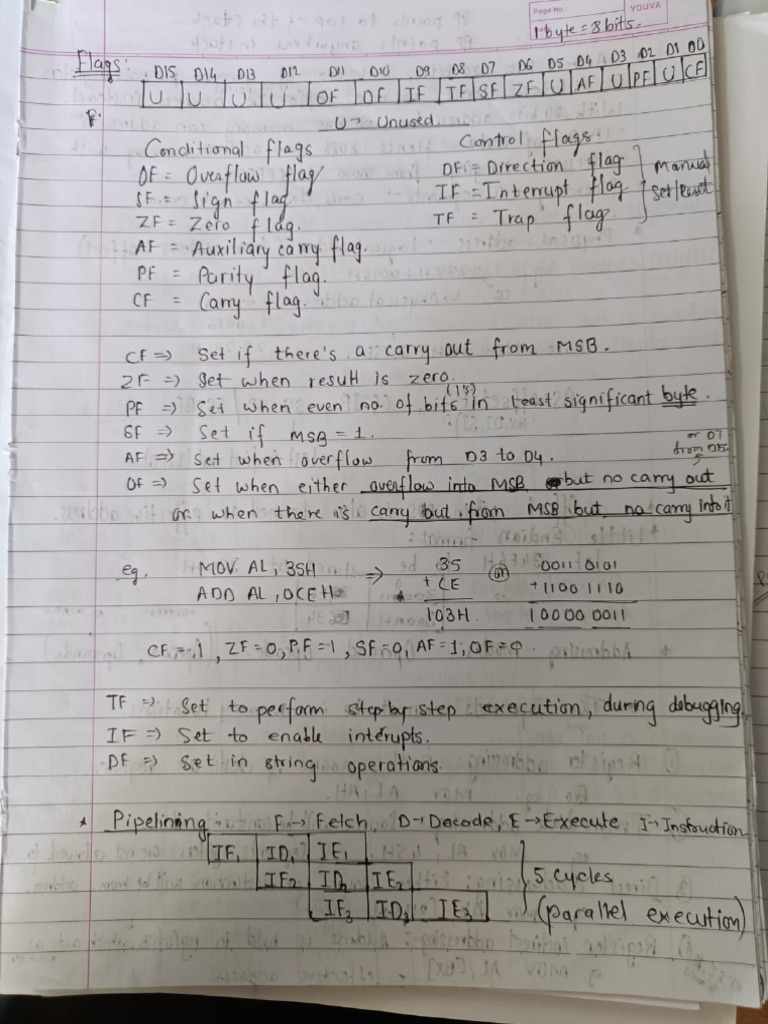 Page No.:
YOUVA
1 byte = 8 bits.
Flags:
D15 D14 D13 D12 D11 D10 D9 D8 D7 D6 D5 D4 D3 D2 D1 D0
U U U U OF DF IF TF SF ZF U AF U PF U CF
U → Unused
Conditional flags
OF = Overflow flag
SF = Sign flag
ZF = Zero flag.
AF = Auxiliary carry flag.
PF = Parity flag.
CF = Carry flag.
Control flags.
DF = Direction flag
IF = Interrupt flag
TF = Trap flag
Manual
CF => Set if there's a carry out from MSB.
ZF => Set when result is zero.
PF => Set when even no. of bits (1's) in least significant byte.
SF => Set if MSB = 1.
AF => Set when overflow from D3 to D4.
or D7
from D15
OF => Set when either overflow into MSB but no carry out
or when there is carry out from MSB but no carry into it
eg. MOV AL, 35H => 35 or 0011 0101
ADD AL, 0CEH + CE + 1100 1110
103H. 1 0000 0011
CF = 1, ZF = 0, PF = 1, SF = 0, AF = 1, OF = 0
TF => Set to perform step by step execution, during debugging.
IF => Set to enable interupts.
DF => Set in string operations.
* Pipelining F → Fetch, D → Decode, E → Execute I → Instruction
IF1 ID1 IE1
IF2 ID2 IE2
IF3 ID3 IE3
5 cycles
(parallel execution)